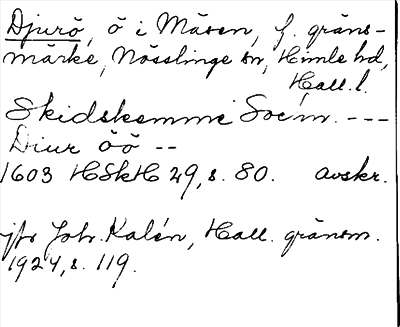 Djurö, ö i Måsen, f. gräns-
märke, Nösslinge sn, Himle hd,
Hall. l.
Skidskemme Soem. ---
Diur öö --
1603 HSkH 29, s. 80. avskr.
jfr Joh. Kalén, Hall. gränsm.
1924, s. 119.